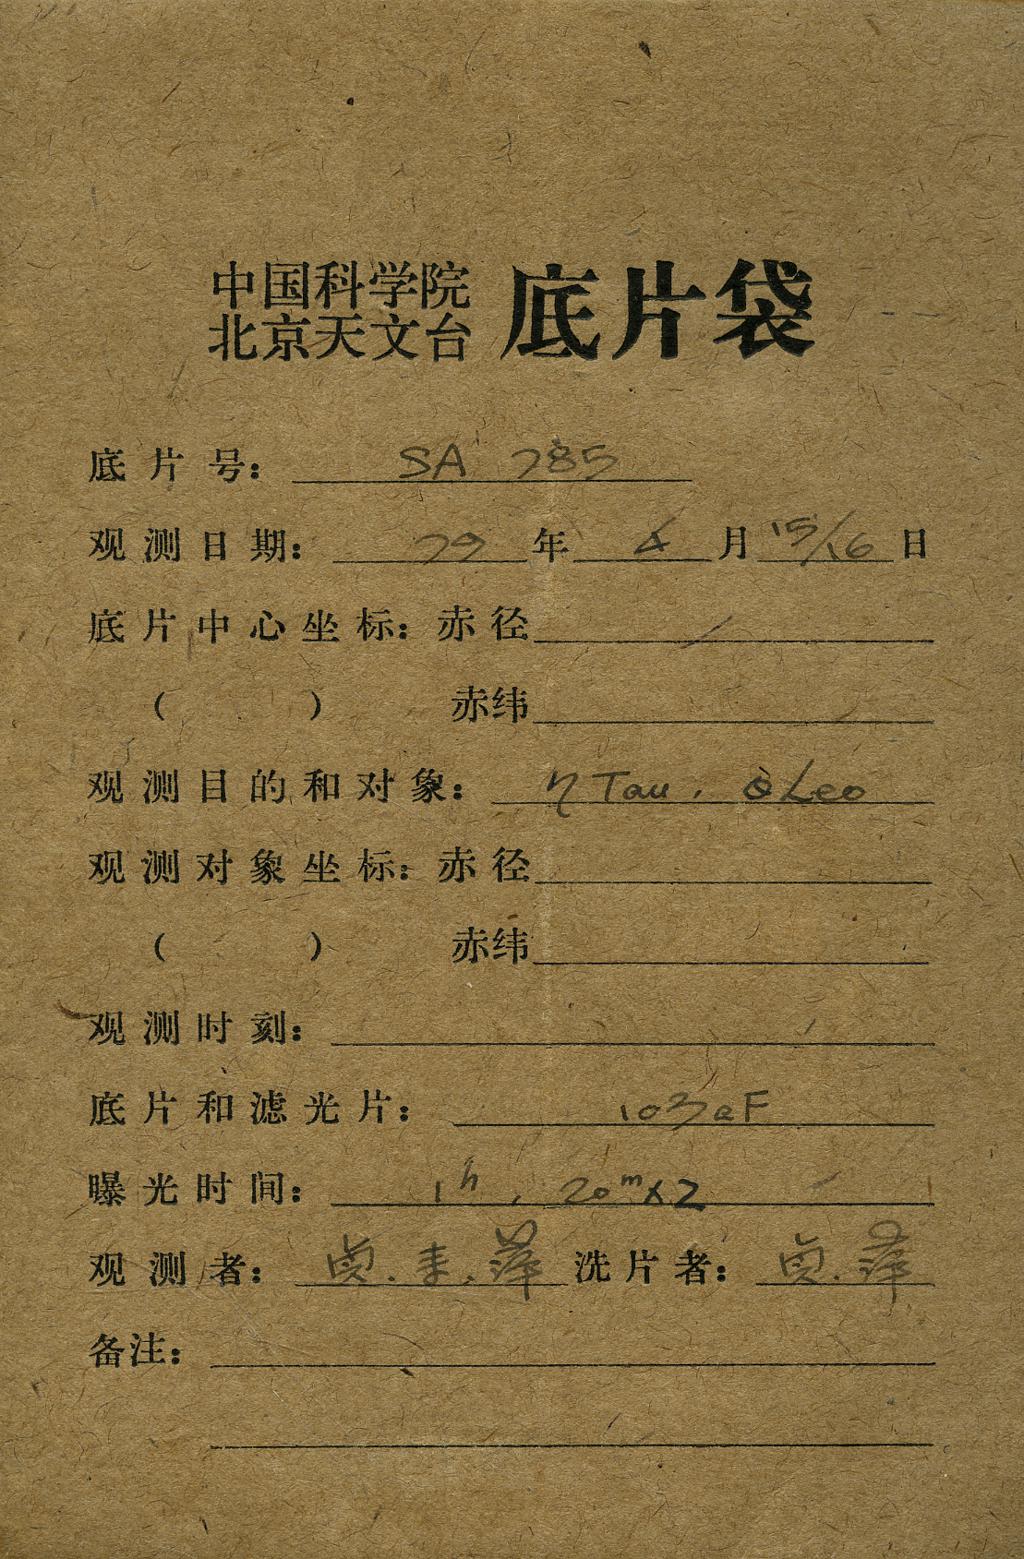 中国科学院
北京天文台 底片袋
底片号: SA 785
观测日期: 79 年 4 月 15/16 日
底片中心坐标: 赤径
( ) 赤纬
观测目的和对象: η Tau. Leo
观测对象坐标: 赤径
( ) 赤纬
观测时刻:
底片和滤光片: 103aF
曝光时间: 1h, 20m×2
观测者: 贞. 萍 洗片者: 贞. 萍
备注: